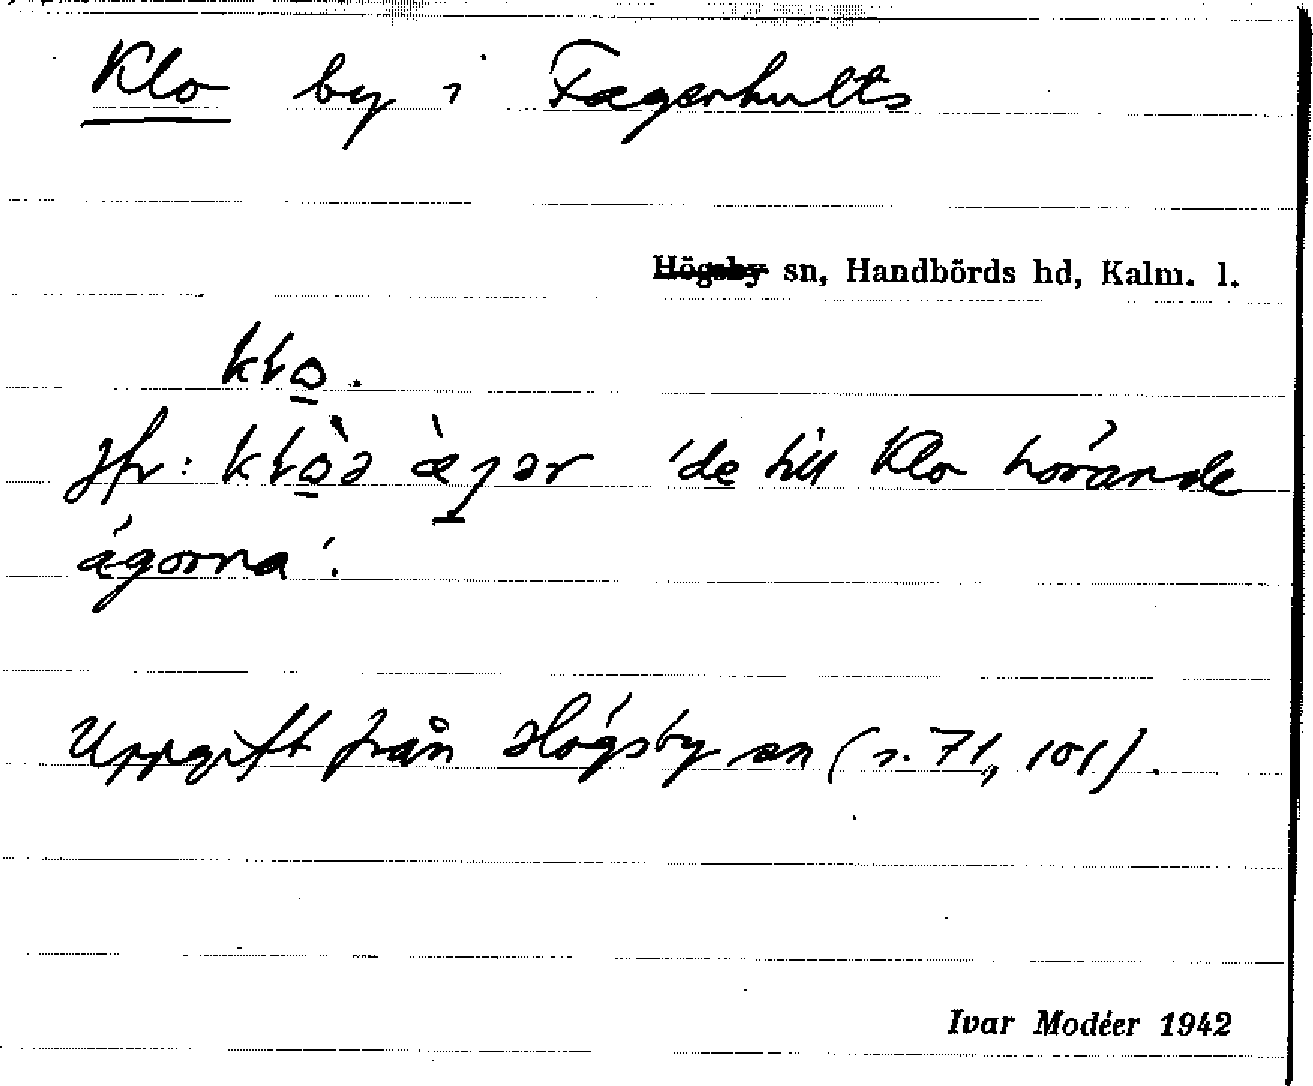 Klo by i Fagerhults
Högsby sn, Handbörds hd, Kalm. l.
kɫo̲.
Jfr: kɫò̲ə æ̀ɡər 'de till Klo hörande
ägorna'.
Uppgift från Högsby sn (s. 71, 101).
Ivar Modéer 1942